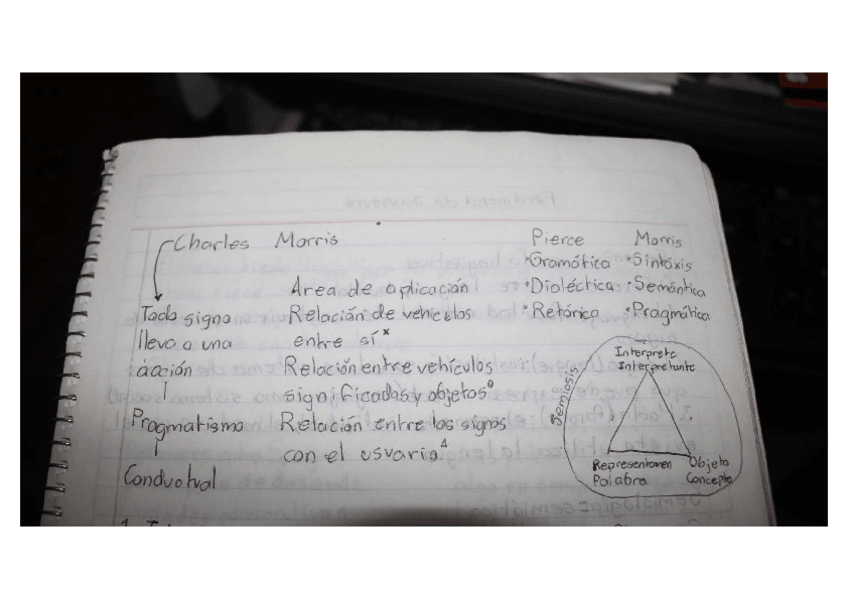 Charles Morris
Todo signo
lleva a una
acción
Pragmatismo
Conductual
Area de aplicación
Relación de vehículos
entre sí*
Relación entre vehículos
significados y objetos°
Relación entre los signos
con el usuario△
Pierce Morris
·Gramática ·Sintáxis
·Dialéctica ·Semántica
·Retórica ·Pragmática
Semiosis
Interprete
Interpretante
Representamen
Palabra
Objeto
Concepto